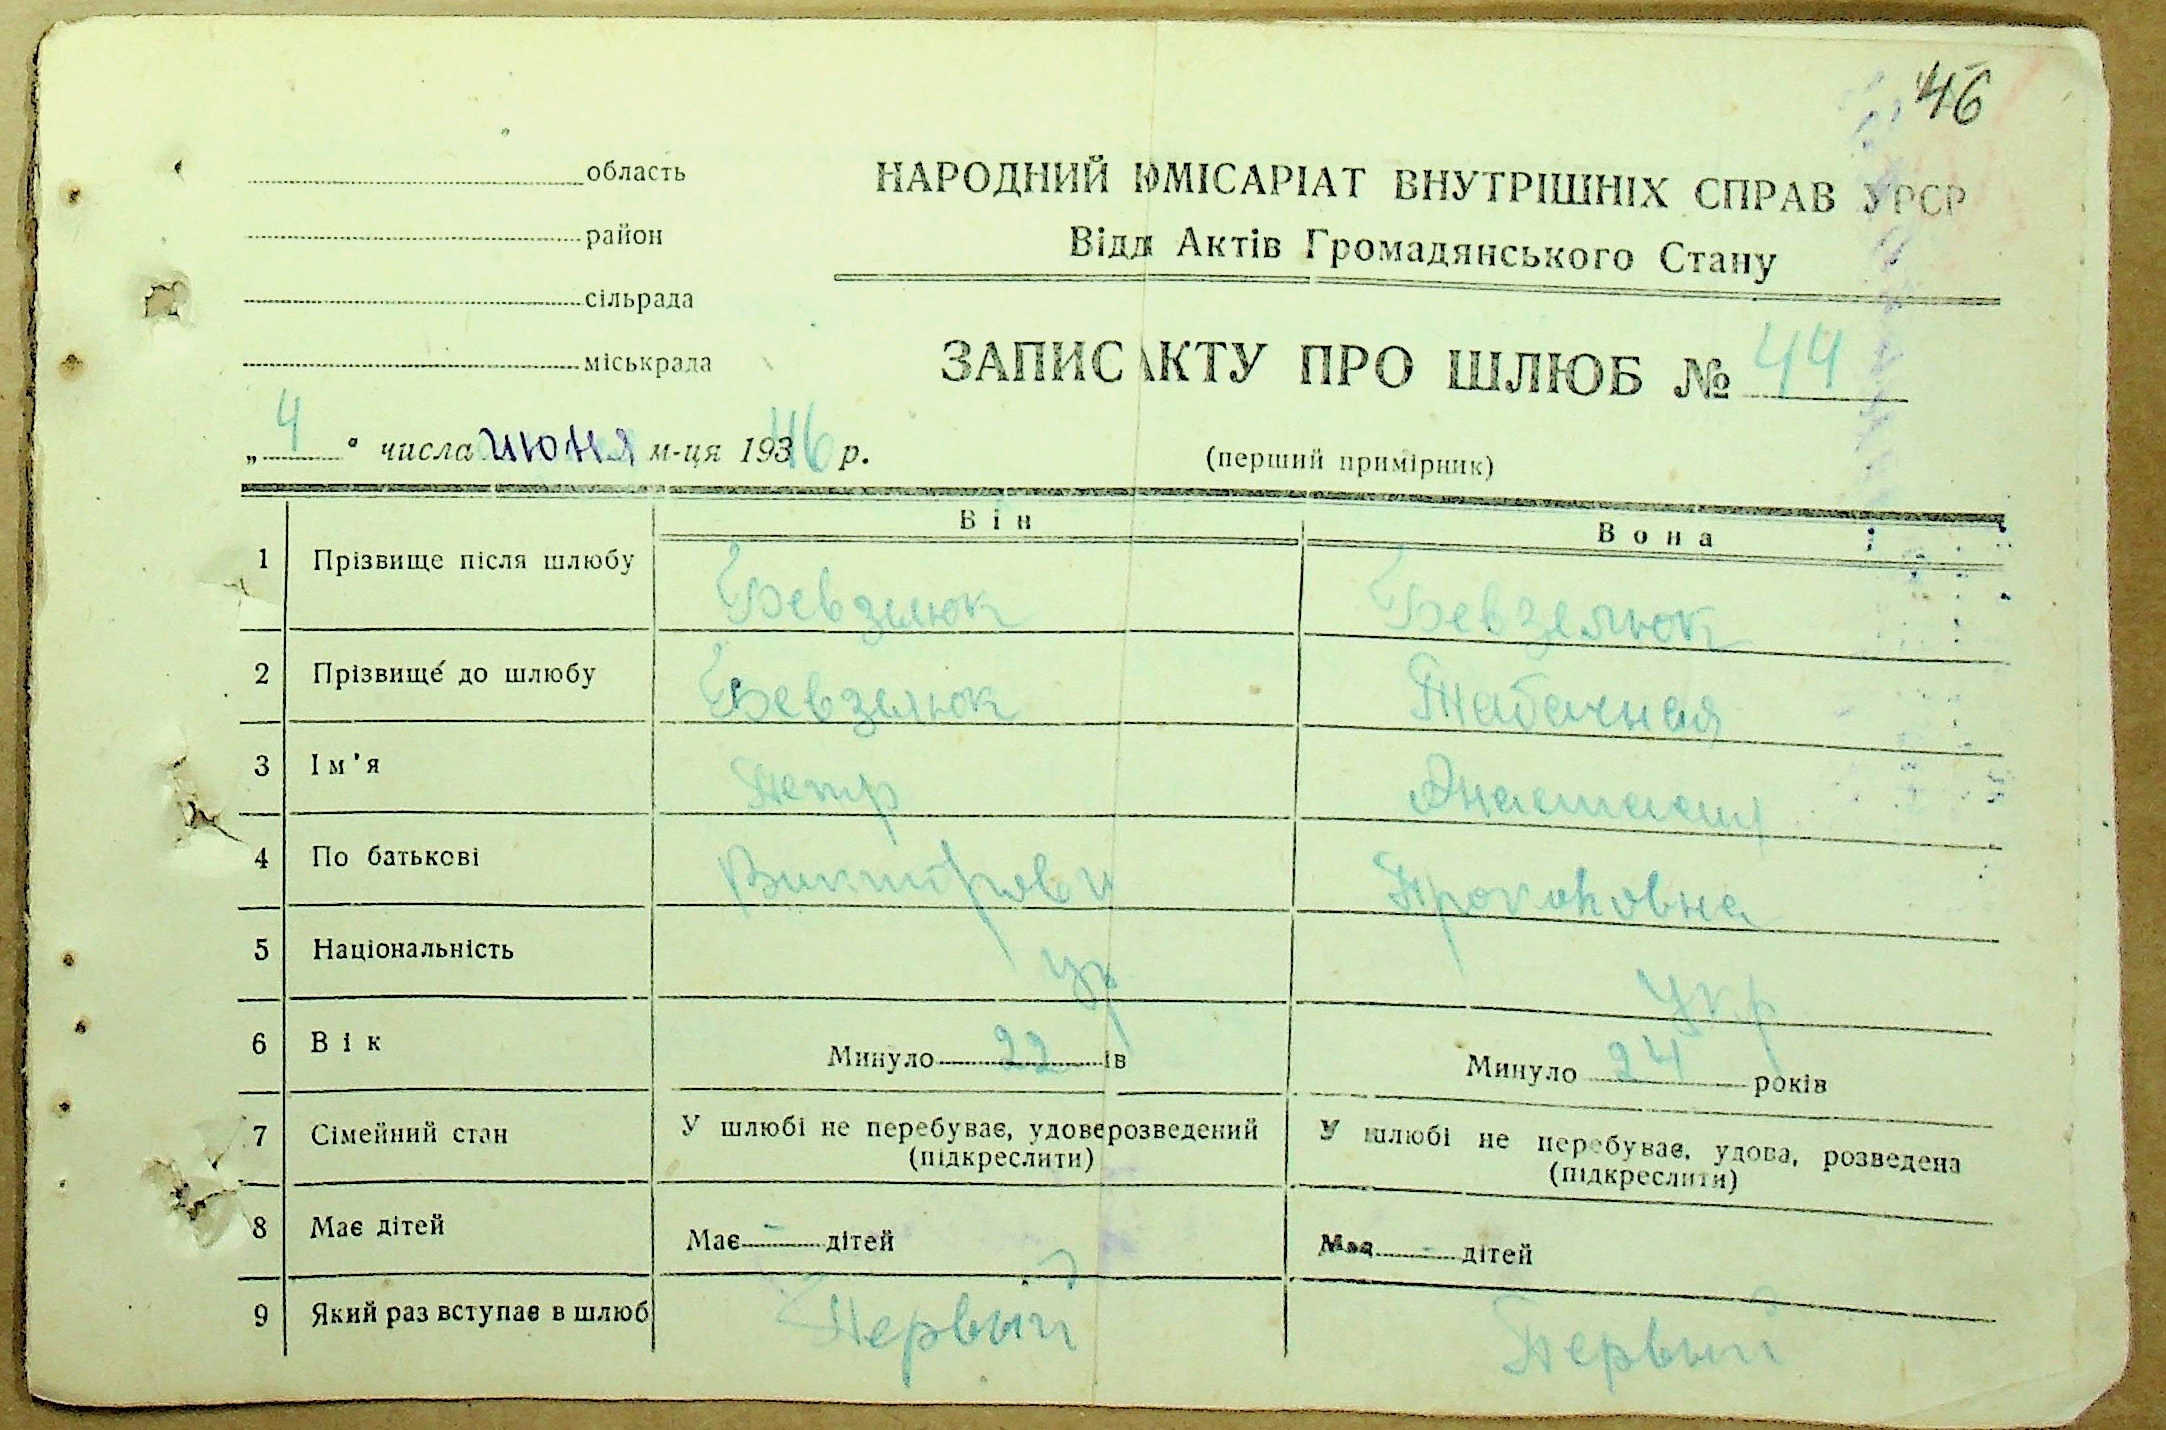 46
область
район
сільрада
міськрада
НАРОДНИЙ КОМІСАРІАТ ВНУТРІШНІХ СПРАВ УРСР
Відд Актів Громадянського Стану
ЗАПИС АКТУ ПРО ШЛЮБ № 44
„ 4 " числа июня м-ця 1946 р.
(перший примірник)
Він
Вона
1 Прізвище після шлюбу Бевзелюк Бевзелюк
2 Прізвище до шлюбу Бевзелюк Табачная
3 Ім'я Петр Анастасия
4 По батькові Викторови Прокоповна
5 Національність Ук Укр
6 Вік Минуло 22 ів Минуло 24 років
7 Сімейний стан У шлюбі не перебуває, удове розведений У шлюбі не перебуває, удова, розведена
(підкреслити) (підкреслити)
8 Має дітей Має - дітей Має - дітей
9 Який раз вступає в шлюб Первый Первый